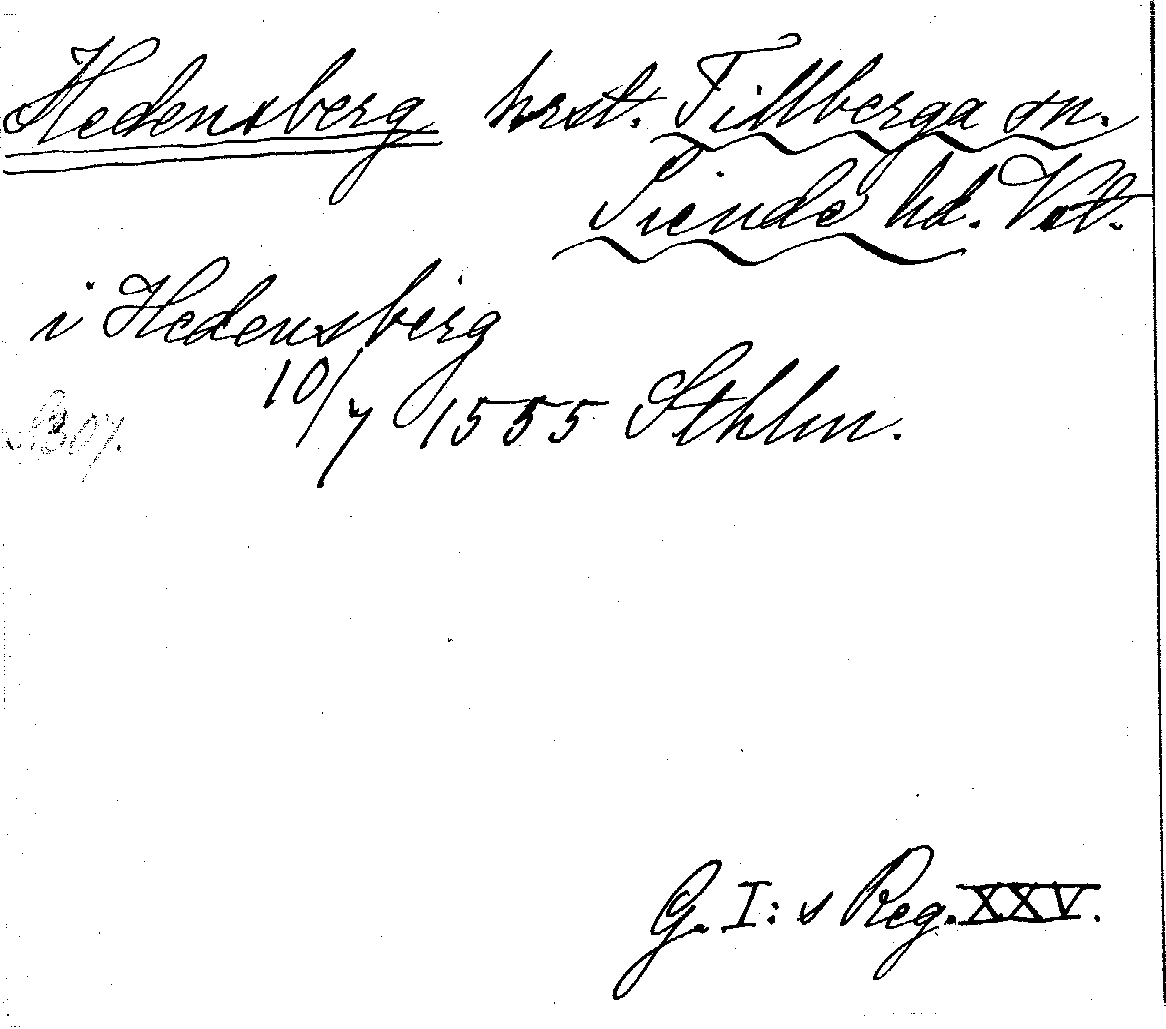 Hedensberg hrst. Tillberga sn.
Siende hd. Vstl.
i Hedensberg
10/7 1555 Sthlm.
G. I:s Reg. XXV.